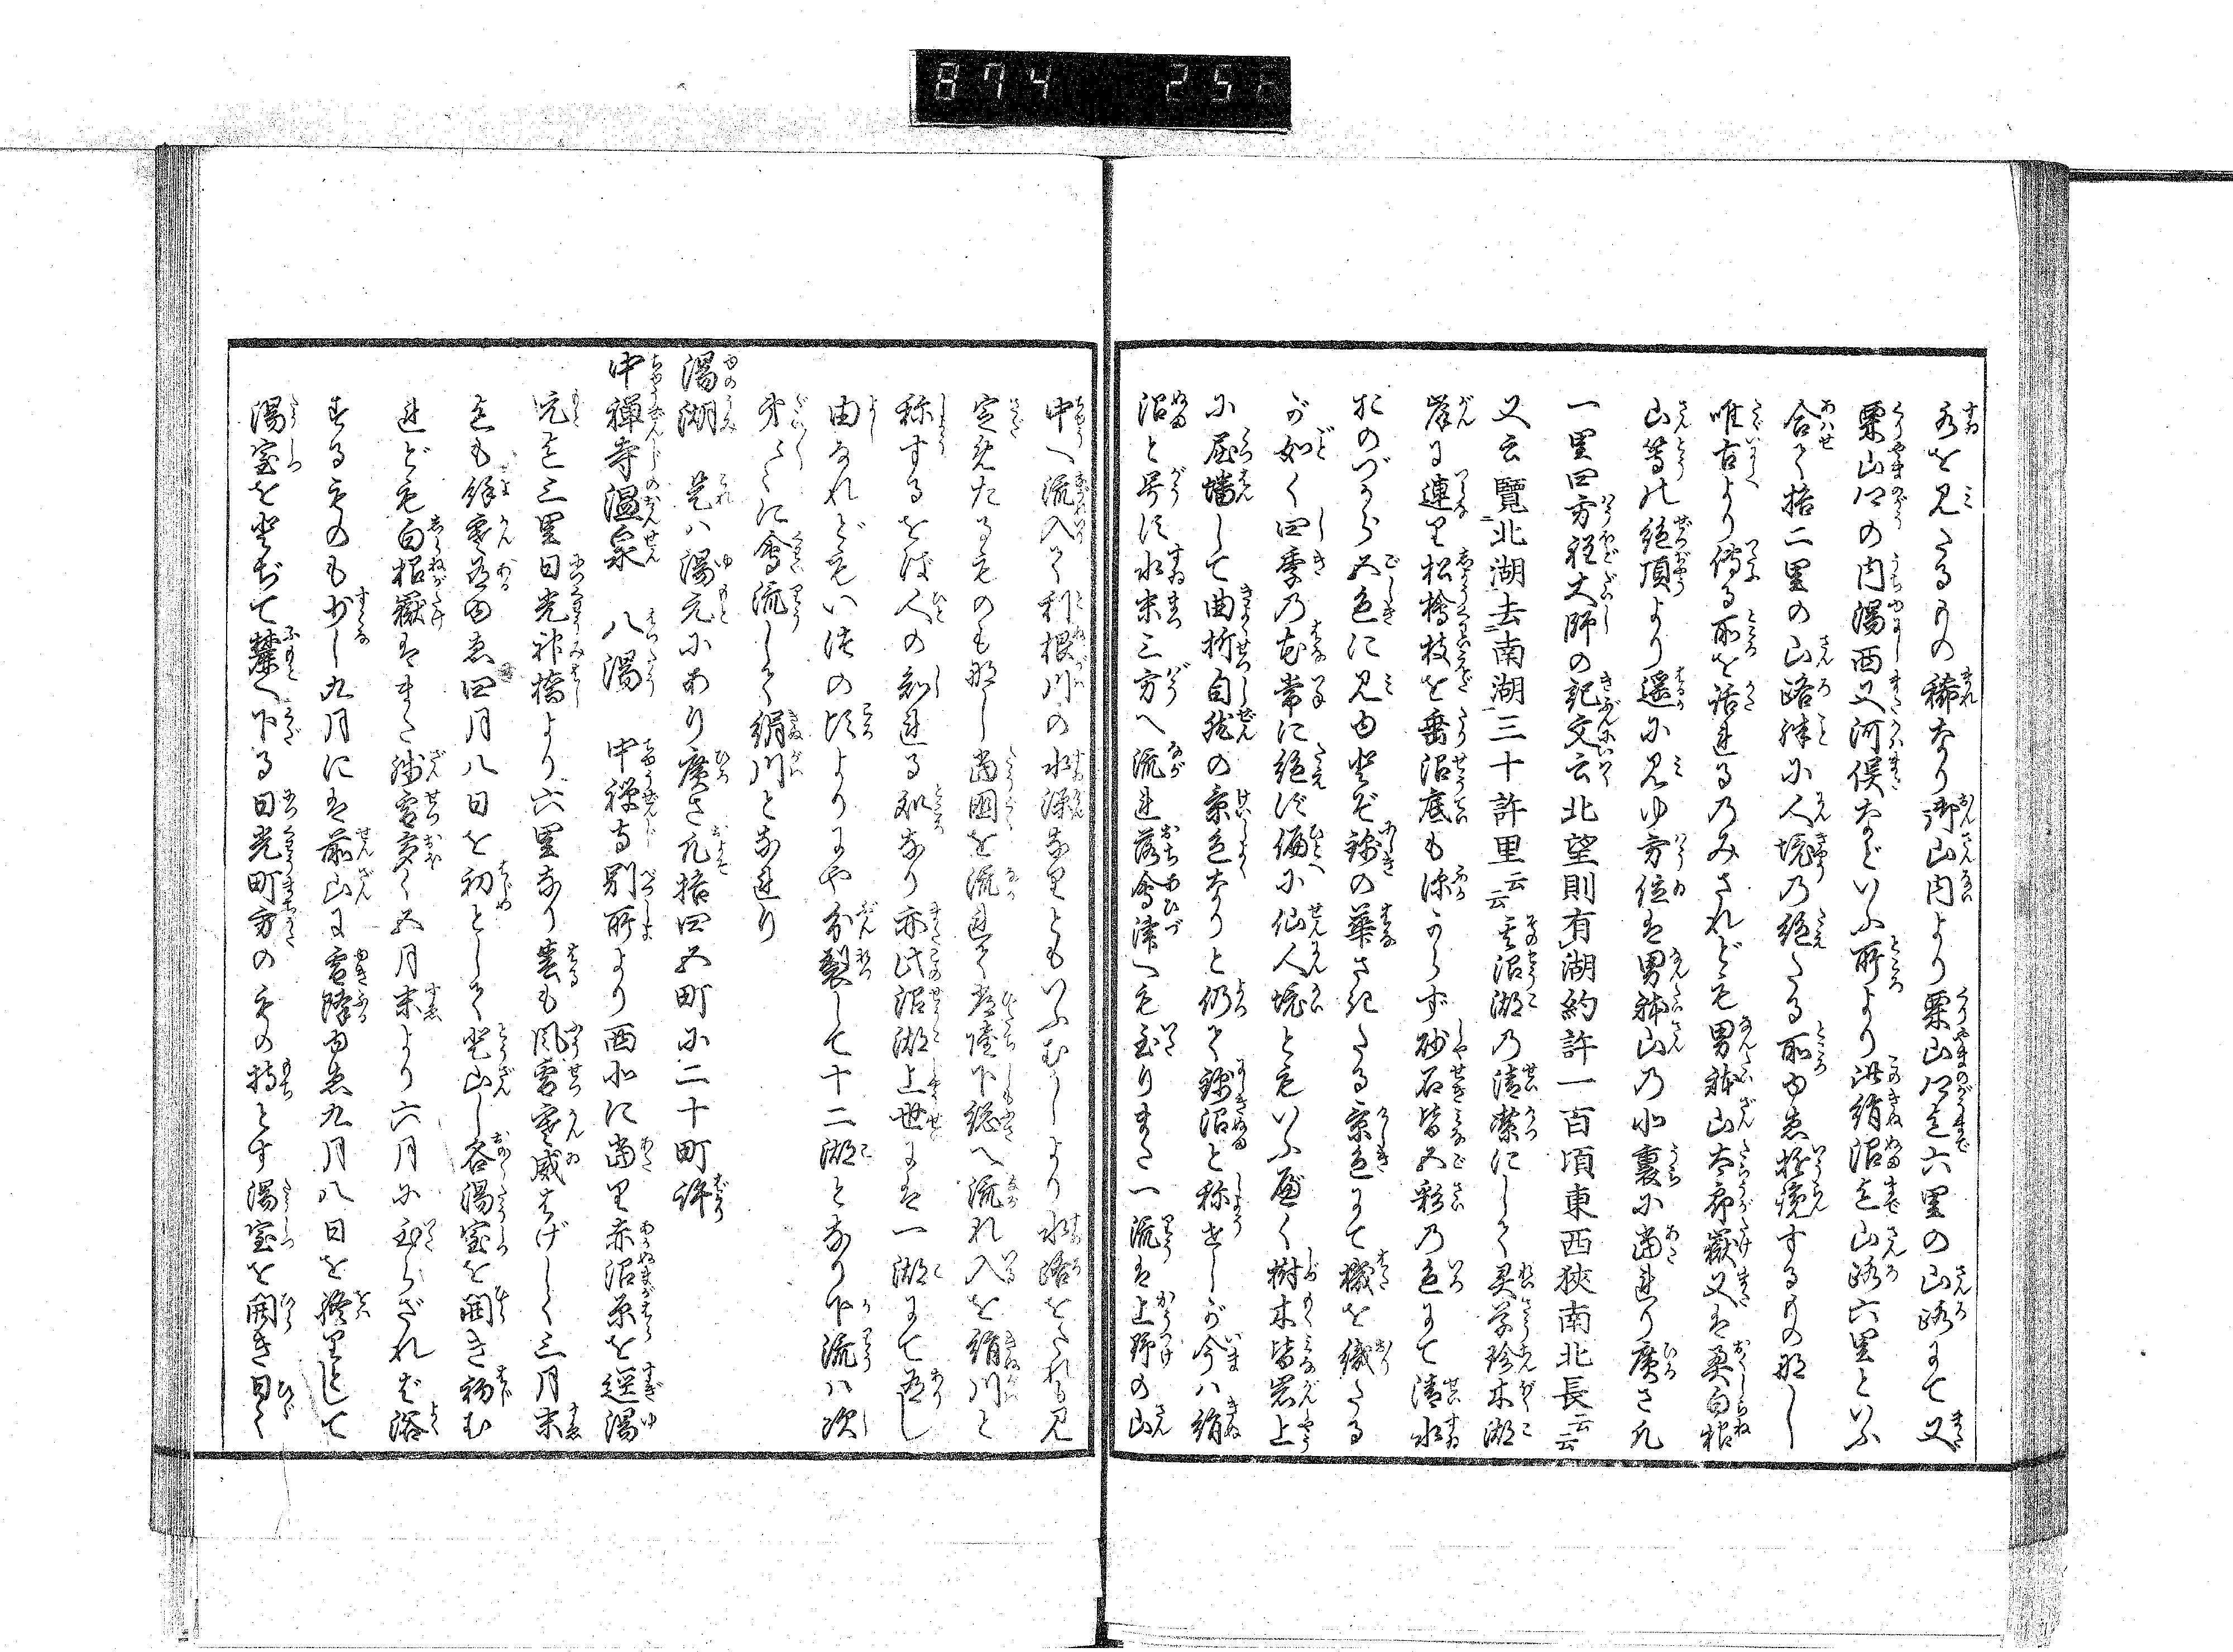 874 25
水を見たるもの稀なり御山内より栗山郷迄六里の山路にて又
栗山郷の内湯西又河俣などいふ所より此絹沼迄山路六里といふ
合て拾二里の山路殊に人境の絶たる所ゆゑ遊覧するもの那し
唯古より傳る所を語れるのみされども男躰山太郎嶽又は奥白根
山等の絶頂より遥に見ゆ方位は男躰山の北裏に當れり廣さ凡
一里四方程大師の記文云北望則有湖約許一百頃東西狹南北長云云
又云覽北湖去南湖三十許里云云其沼湖の清潔にして異草珍木湖
岸に連り松檜枝を垂沼底も深からず砂石皆五彩の色にて清水
おのづから五色に見ゆ殊錦の華さたる景色にて機を織たる
が如く四季の花常に絶ず偏に仙人境ともいふべく樹木皆岩上
に屈蟠して曲折自然の景色なりと仍て錦沼と称せしが今ハ絹
沼と号す水末三方へ流れ落會津へも至りまた一流は上野の山
中へ流入て利根川の水源なりともいふむかしより水路をたれも見
定めたるものも那し當國を流れて常陸下総へ流れ入を絹川と
称するをば人の知れる所なり亦此沼湖上世には一湖にて有し
由なれどもいつの頃よりにや分裂して十二湖となり下流ハ次
第〱に會流して絹川となれり
湯湖　是ハ湯元にあり廣さ凡拾四五町に二十町許
中禅寺温泉　八湯　中禅寺別所より西北に當り赤沼原を經湯
元迄三里日光神橋より六里なり春も風雪寒威はげしく三月末
迄も餘寒有ゆゑ四月八日を初として登山し各湯室を開き初む
れども白根嶽はまた残雪多く五月末より六月に至らざれば浴
するものも少し九月には前山に雪降ゆゑ九月八日を終りとして
湯室を登ぢて麓へ下る日光町方のもの持とす湯室を開き日く